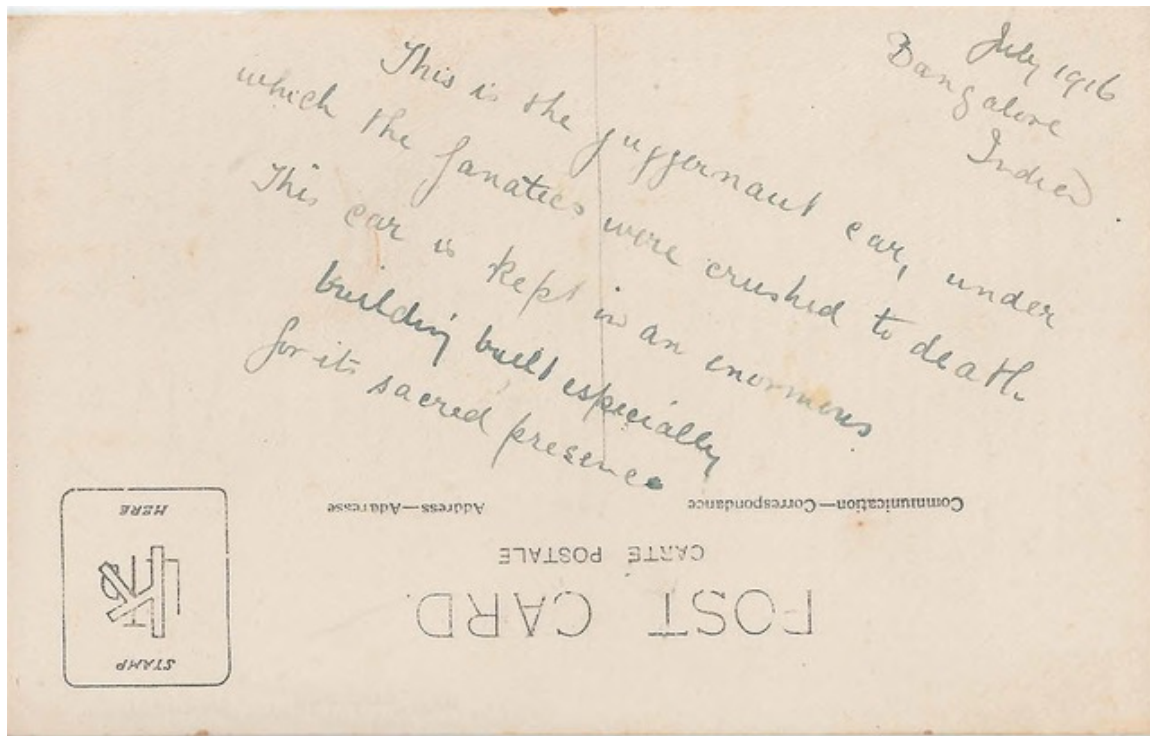 July 1916
Bangalore
India
This is the juggernaut car, under
which the fanatics were crushed to death
This car is kept in an enormous
building built especially
for its sacred presence
Communication—Correspondance
Address—Adresse
CARTE POSTALE
POST CARD.
STAMP
HERE